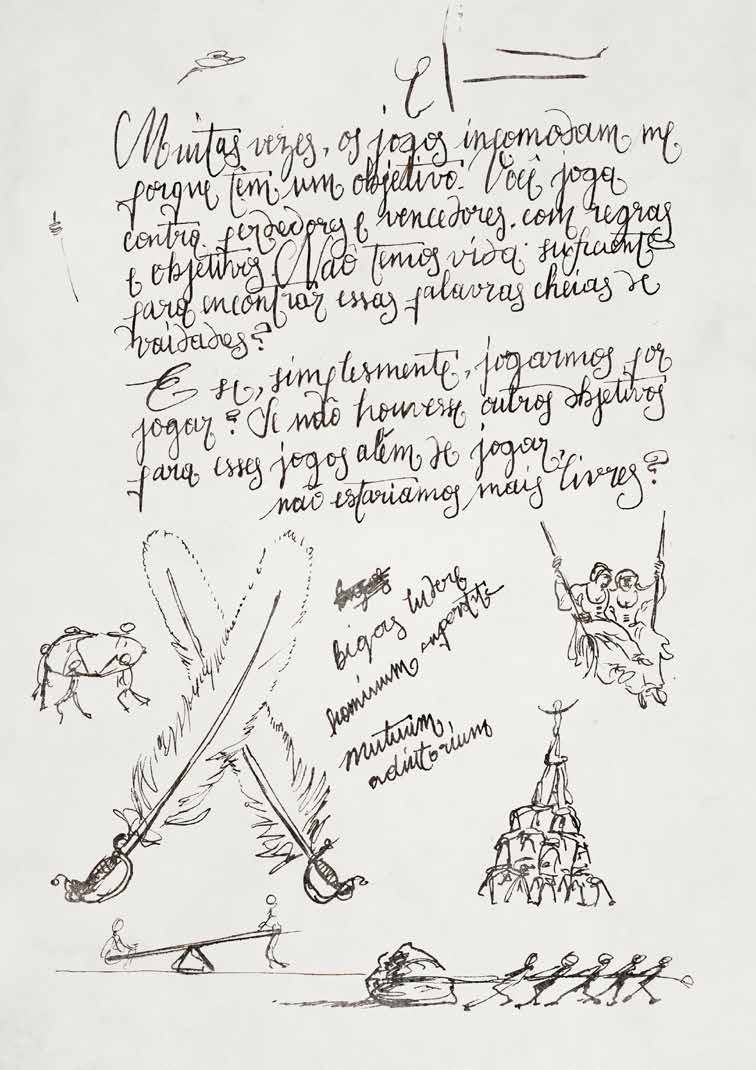 Muitas vezes, os jogos incomodam me
porque têm um objetivo. Você joga
contra perdedores e vencedores, com regras
e objetivos. Não temos vida suficiente
para encontrar essas palavras cheias de
vaidades?
E se, simplesmente, jogarmos por
jogar? Se não houvesse outros objetivos
para esses jogos além de jogar,
não estaríamos mais livres?
bigas ludere
hominum
mutuum
adiutorium